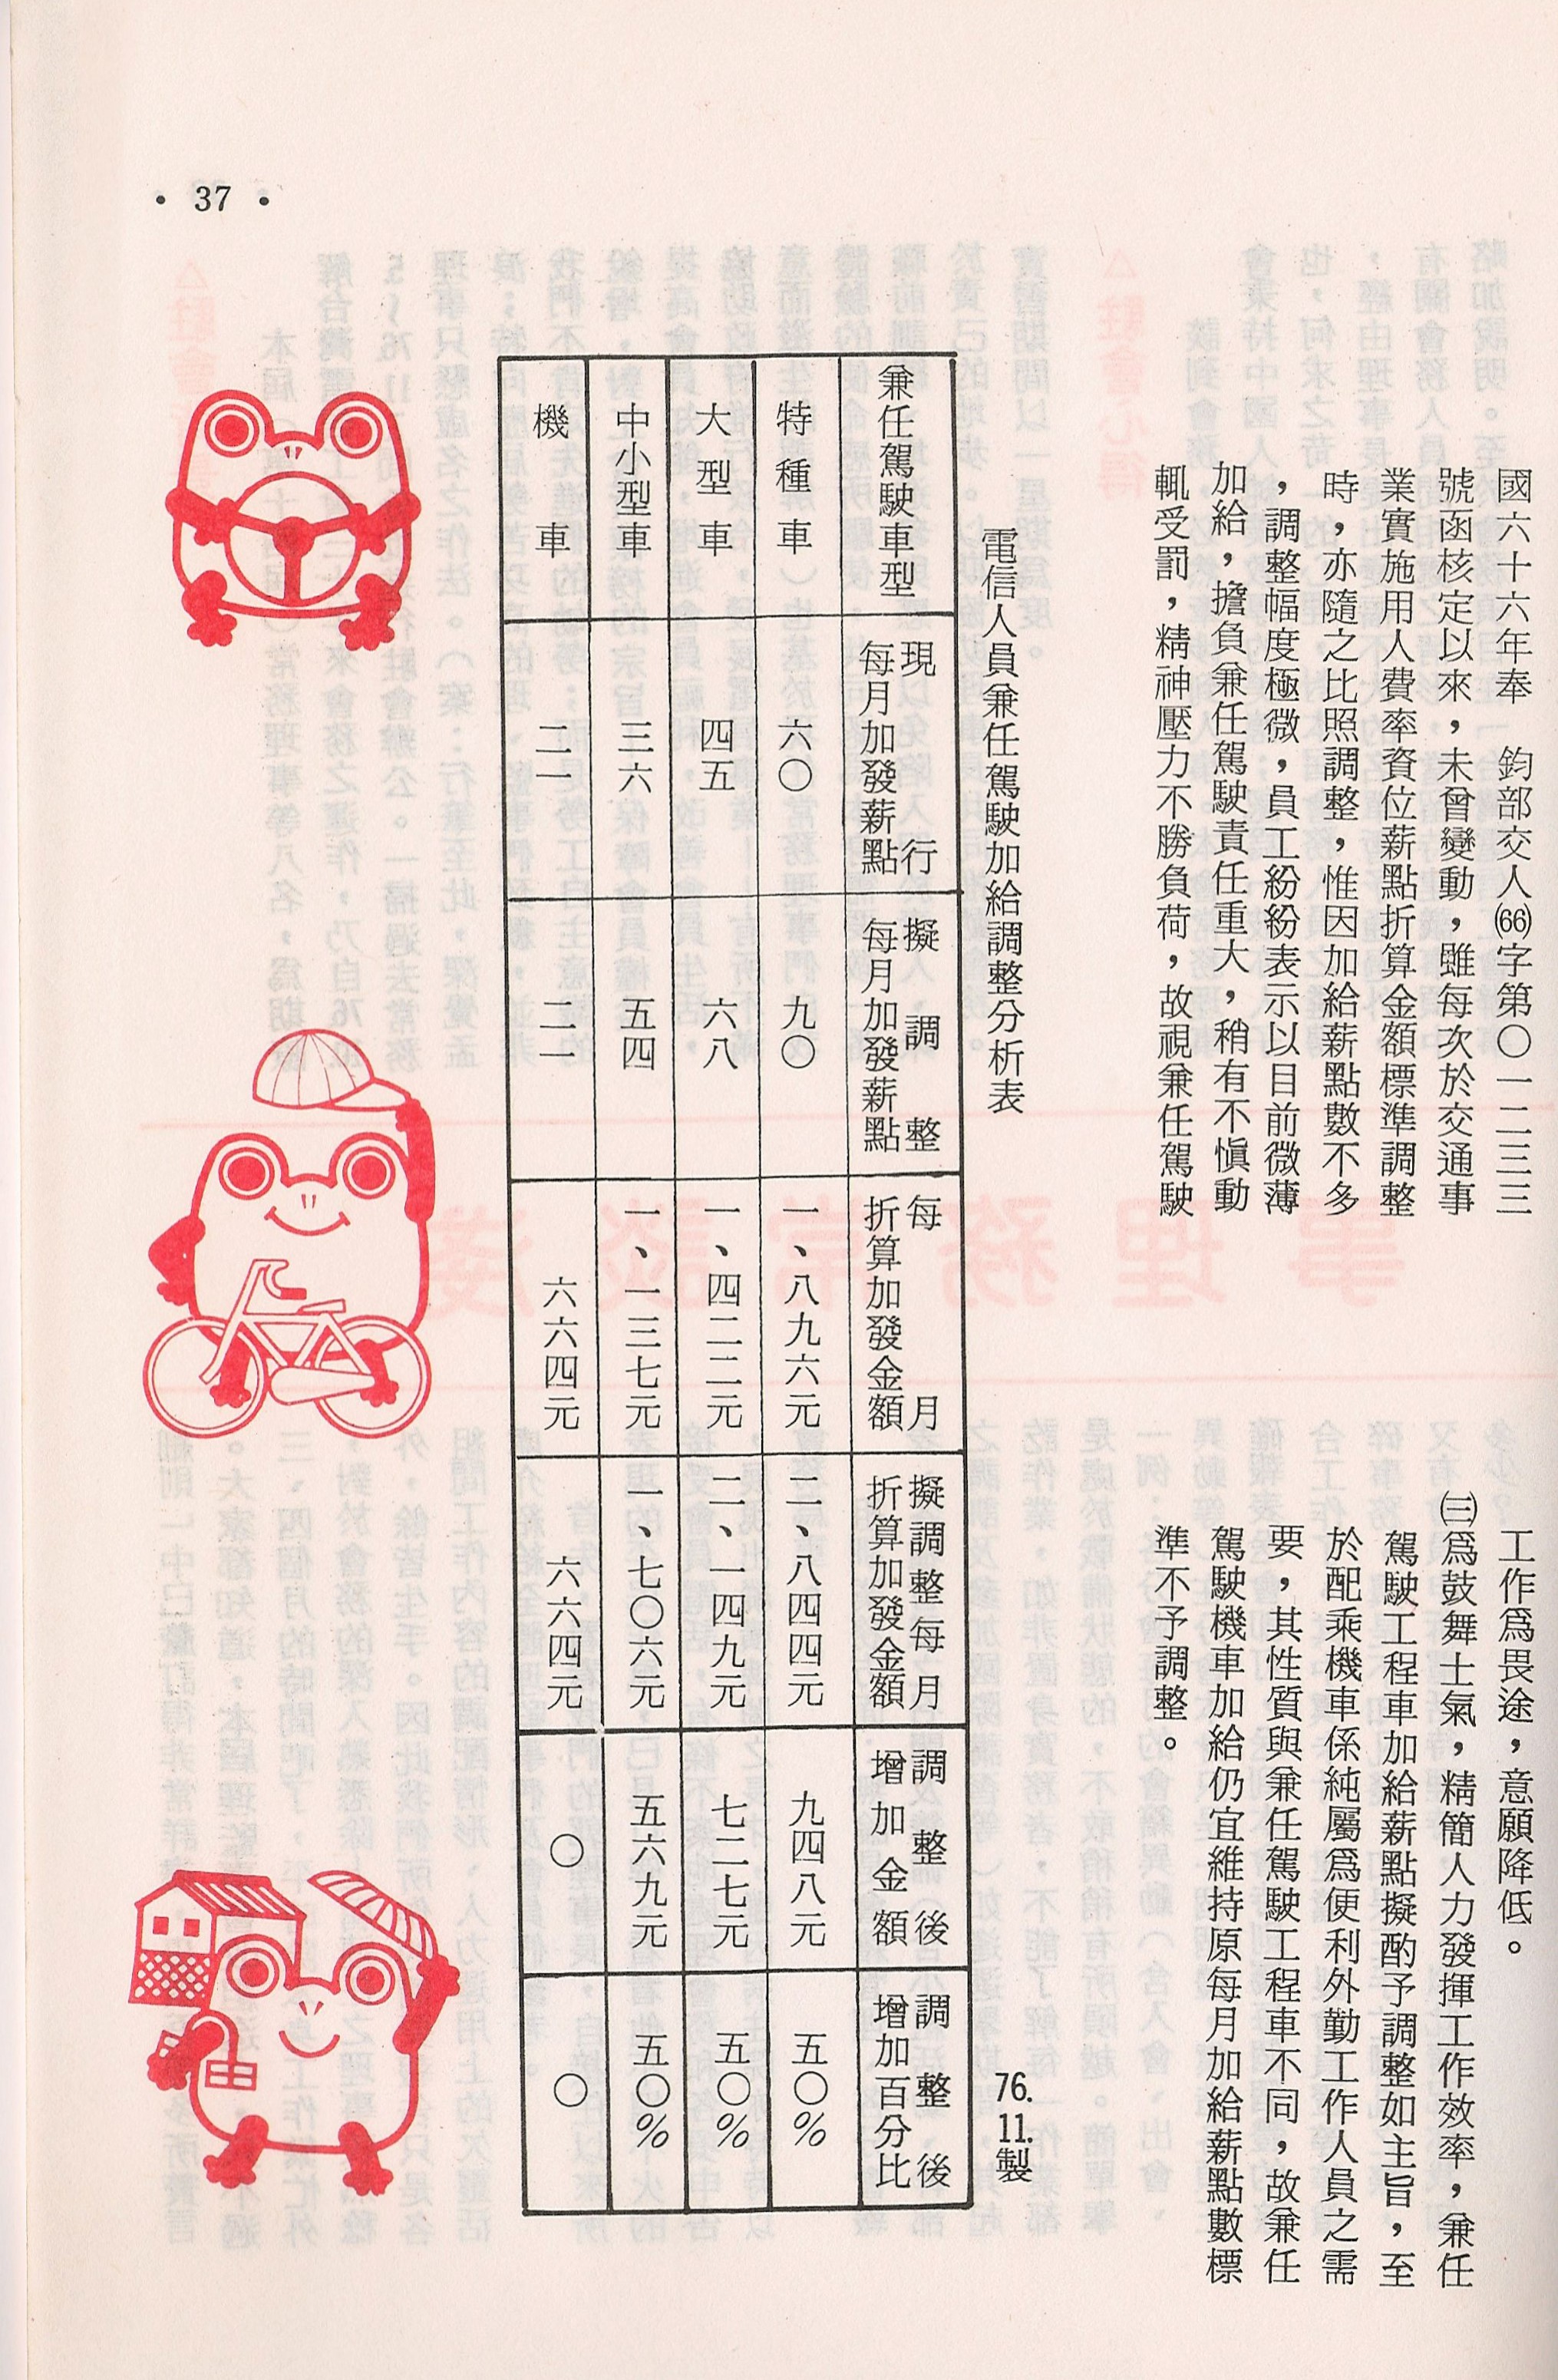 國六十六年奉　鈞部交人(66)字第〇一二三三
號函核定以來，未曾變動，雖每次於交通事
業實施用人費率資位薪點折算金額標準調整
時，亦隨之比照調整，惟因加給薪點數不多
，調整幅度極微，員工紛紛表示以目前微薄
加給，擔負兼任駕駛責任重大，稍有不慎動
輒受罰，精神壓力不勝負荷，故視兼任駕駛
工作爲畏途，意願降低。
㈢爲鼓舞士氣，精簡人力發揮工作效率，兼任
駕駛工程車加給薪點擬酌予調整如主旨，至
於配乘機車係純屬爲便利外勤工作人員之需
要，其性質與兼任駕駛工程車不同，故兼任
駕駛機車加給仍宜維持原每月加給薪點數標
準不予調整。
電信人員兼任駕駛加給調整分析表
76.11.製
兼任駕駛車型
現行
每月加發薪點
擬調整
每月加發薪點
每月
折算加發金額
擬調整每月
折算加發金額
調整後
增加金額
調整後
增加百分比
特種車
六〇
九〇
一、八九六元
二、八四四元
九四八元
五〇%
大型車
四五
六八
一、四二二元
二、一四九元
七二七元
五〇%
中小型車
三六
五四
一、一三七元
一、七〇六元
五六九元
五〇%
機車
二一
二一
六六四元
六六四元
〇
〇
• 37 •